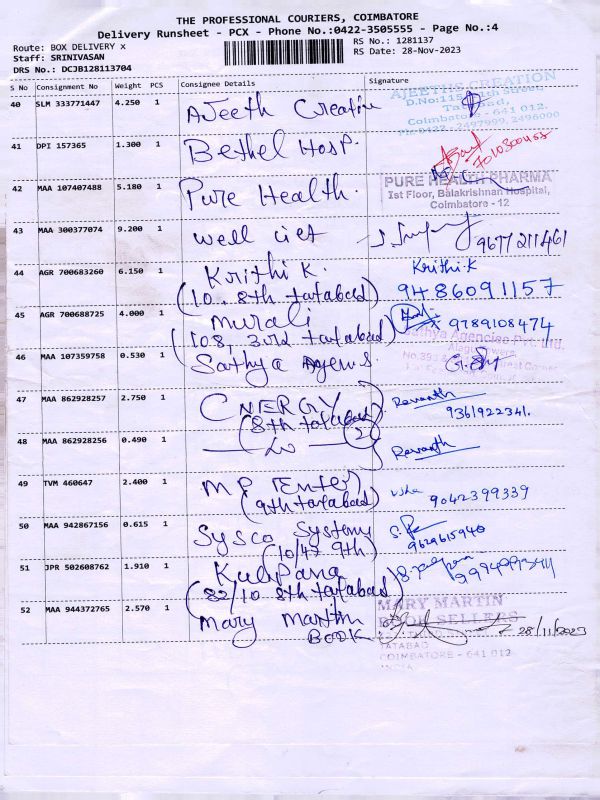 THE PROFESSIONAL COURIERS, COIMBATORE
Delivery Runsheet - PCX - Phone No.:0422-3505555 - Page No.:4
Route: BOX DELIVERY x RS No.: 1281137
Staff: SRINIVASAN RS Date: 28-Nov-2023
DRS No.: DCJB128113704
S No Consignment No Weight PCS Consignee Details Signature
40 SLM 333771447 4.250 1 AJeeth Creation
AJEETHS CREATION
Tatabad,
Coimbatore - 641 012.
Ph:0422 - 2497999, 2496000
41 DPI 157365 1.300 1 Bethel Hosp.
42 MAA 107407488 5.180 1 Pure Health.
PURE HEALTH PHARMA
Ist Floor, Balakrishnan Hospital,
Coimbatore - 12
43 MAA 300377074 9.200 1 well 9677211461
44 AGR 700683260 6.150 1 Krithi K. Krithi.K
(10. 8th tatabad) 9486091157
45 AGR 700688725 4.000 1 murali
(108, 3rd tatabad) 9789108474
46 MAA 107359758 0.530 1 Sathya Agens.
Sathya Agencies Pvt. Ltd.
47 MAA 862928257 2.750 1 CNERGY Revanth
(8th tatabad) 9361922341.
48 MAA 862928256 0.490 1 (2) Revanth
49 TVM 460647 2.400 1 M P Enter Usha
(9th tatabad) 9042399339
50 MAA 942867156 0.615 1 Sysco Systems
(10/47 9th) 9629615940
51 JPR 502608762 1.910 1 Kulpana
(82/10 8th tatabad)
52 MAA 944372765 2.570 1 Mary Martin
BOOK
MARY MARTIN
BOOK SELLERS
28/11/2023
TATABAD
COIMBATORE - 641 012
INDIA